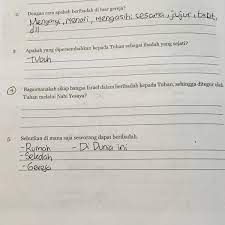 2. Dengan cara apakah beribadah di luar gereja?
Menyanyi, Menari, Mengasihi sesama, jujur, tertib,
dll
3. Apakah yang dipersembahkan kepada Tuhan sebagai ibadah yang sejati?
Tubuh
4. Bagaimanakah sikap bangsa Israel dalam beribadah kepada Tuhan, sehingga ditegur oleh
Tuhan melalui Nabi Yesaya?
5. Sebutkan di mana saja seseorang dapat beribadah.
- Rumah - Di Dunia ini
- Sekolah
- Gereja